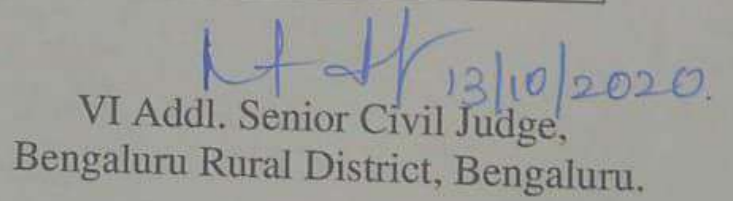 13/10/2020.
VI Addl. Senior Civil Judge,
Bengaluru Rural District, Bengaluru.